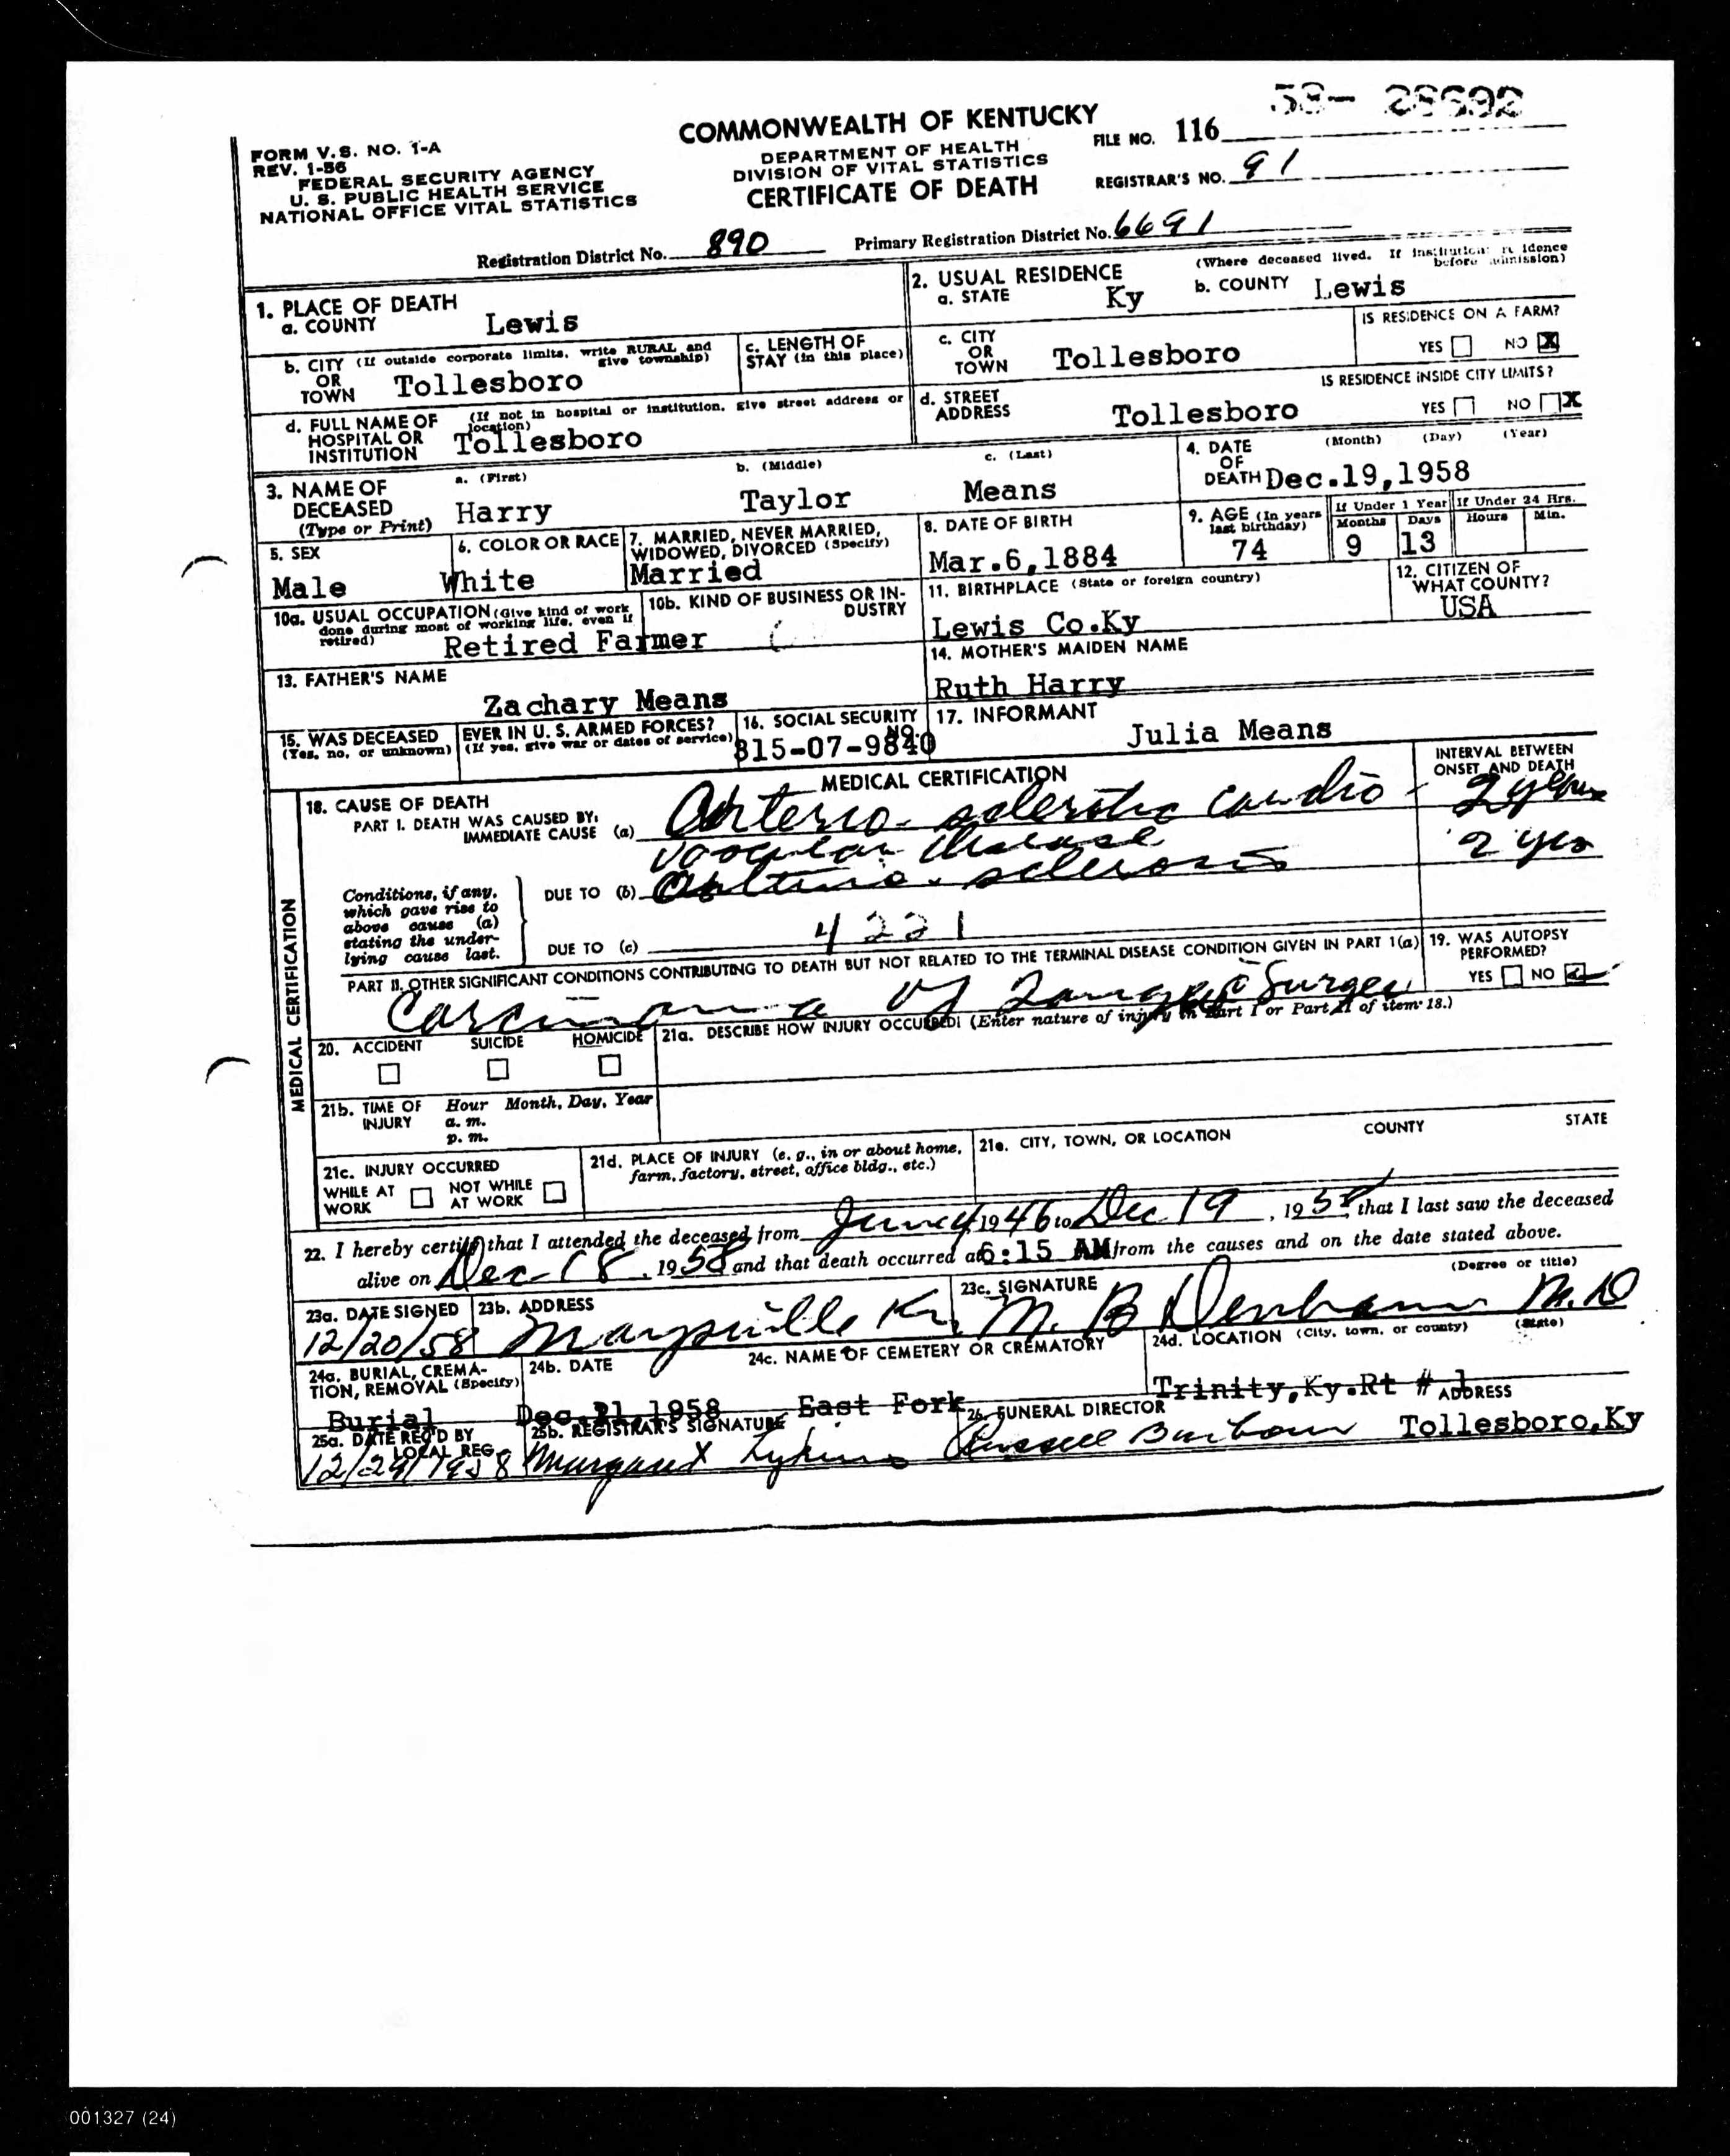 58- 28692
COMMONWEALTH OF KENTUCKY
FORM V.S. NO. 1-A
REV. 1-56
FEDERAL SECURITY AGENCY
U. S. PUBLIC HEALTH SERVICE
NATIONAL OFFICE VITAL STATISTICS
DEPARTMENT OF HEALTH
DIVISION OF VITAL STATISTICS
CERTIFICATE OF DEATH
FILE NO. 116
REGISTRAR'S NO. 91
Registration District No. 890 Primary Registration District No. 6691
1. PLACE OF DEATH
a. COUNTY Lewis
2. USUAL RESIDENCE (Where deceased lived. If institution: residence before admission)
a. STATE Ky b. COUNTY Lewis
b. CITY (If outside corporate limits, write RURAL and give township)
OR
TOWN Tollesboro
c. LENGTH OF
STAY (in this place)
c. CITY
OR
TOWN Tollesboro
IS RESIDENCE ON A FARM?
YES NO X
d. FULL NAME OF (If not in hospital or institution, give street address or location)
HOSPITAL OR
INSTITUTION Tollesboro
d. STREET
ADDRESS Tollesboro
IS RESIDENCE INSIDE CITY LIMITS?
YES NO X
3. NAME OF
DECEASED
(Type or Print)
a. (First) b. (Middle) c. (Last)
Harry Taylor Means
4. DATE (Month) (Day) (Year)
OF
DEATH Dec.19,1958
5. SEX
Male
6. COLOR OR RACE
White
7. MARRIED, NEVER MARRIED,
WIDOWED, DIVORCED (Specify)
Married
8. DATE OF BIRTH
Mar.6,1884
9. AGE (In years
last birthday)
74
If Under 1 Year If Under 24 Hrs.
Months Days Hours Min.
9 13
10a. USUAL OCCUPATION (Give kind of work
done during most of working life, even if
retired) Retired Farmer
10b. KIND OF BUSINESS OR IN-
DUSTRY
11. BIRTHPLACE (State or foreign country)
Lewis Co.Ky
12. CITIZEN OF
WHAT COUNTY?
USA
13. FATHER'S NAME
Zachary Means
14. MOTHER'S MAIDEN NAME
Ruth Harry
15. WAS DECEASED EVER IN U. S. ARMED FORCES?
(Yes, no, or unknown) (If yes, give war or dates of service)
16. SOCIAL SECURITY
NO.
315-07-9840
17. INFORMANT
Julia Means
MEDICAL CERTIFICATION
MEDICAL CERTIFICATION
INTERVAL BETWEEN
ONSET AND DEATH
18. CAUSE OF DEATH
PART I. DEATH WAS CAUSED BY:
IMMEDIATE CAUSE (a) Arterio-sclerotic cardio- 2 years
vascular disease
Conditions, if any,
which gave rise to
above cause (a)
stating the under-
lying cause last.
DUE TO (b) Arterio-sclerosis 2 yrs
DUE TO (c) 4221
PART II. OTHER SIGNIFICANT CONDITIONS CONTRIBUTING TO DEATH BUT NOT RELATED TO THE TERMINAL DISEASE CONDITION GIVEN IN PART 1(a)
Carcinoma of
19. WAS AUTOPSY
PERFORMED?
YES NO
20. ACCIDENT SUICIDE HOMICIDE
21a. DESCRIBE HOW INJURY OCCURED: (Enter nature of injury in Part I or Part II of item 18.)
21b. TIME OF
INJURY
Hour Month, Day, Year
a. m.
p. m.
21c. INJURY OCCURRED
WHILE AT
WORK
NOT WHILE
AT WORK
21d. PLACE OF INJURY (e. g., in or about home,
farm, factory, street, office bldg., etc.)
21e. CITY, TOWN, OR LOCATION COUNTY STATE
22. I hereby certify that I attended the deceased from June 4, 1946 to Dec 19, 1958, that I last saw the deceased
alive on Dec-18, 1958 and that death occurred at 6:15 AM from the causes and on the date stated above.
23a. DATE SIGNED
12/20/58
23b. ADDRESS
Maysville Ky.
23c. SIGNATURE (Degree or title)
M. B Denham M.D
24a. BURIAL, CREMA-
TION, REMOVAL (Specify)
Burial
24b. DATE
Dec.21,1958
24c. NAME OF CEMETERY OR CREMATORY
East Fork
24d. LOCATION (City, town, or county) (State)
Trinity,Ky.Rt # 1
25a. DATE REC'D BY
LOCAL REG.
12/29/1958
25b. REGISTRAR'S SIGNATURE
Margaret Lykins
26. FUNERAL DIRECTOR ADDRESS
Russell Barbour Tollesboro,Ky
001327 (24)